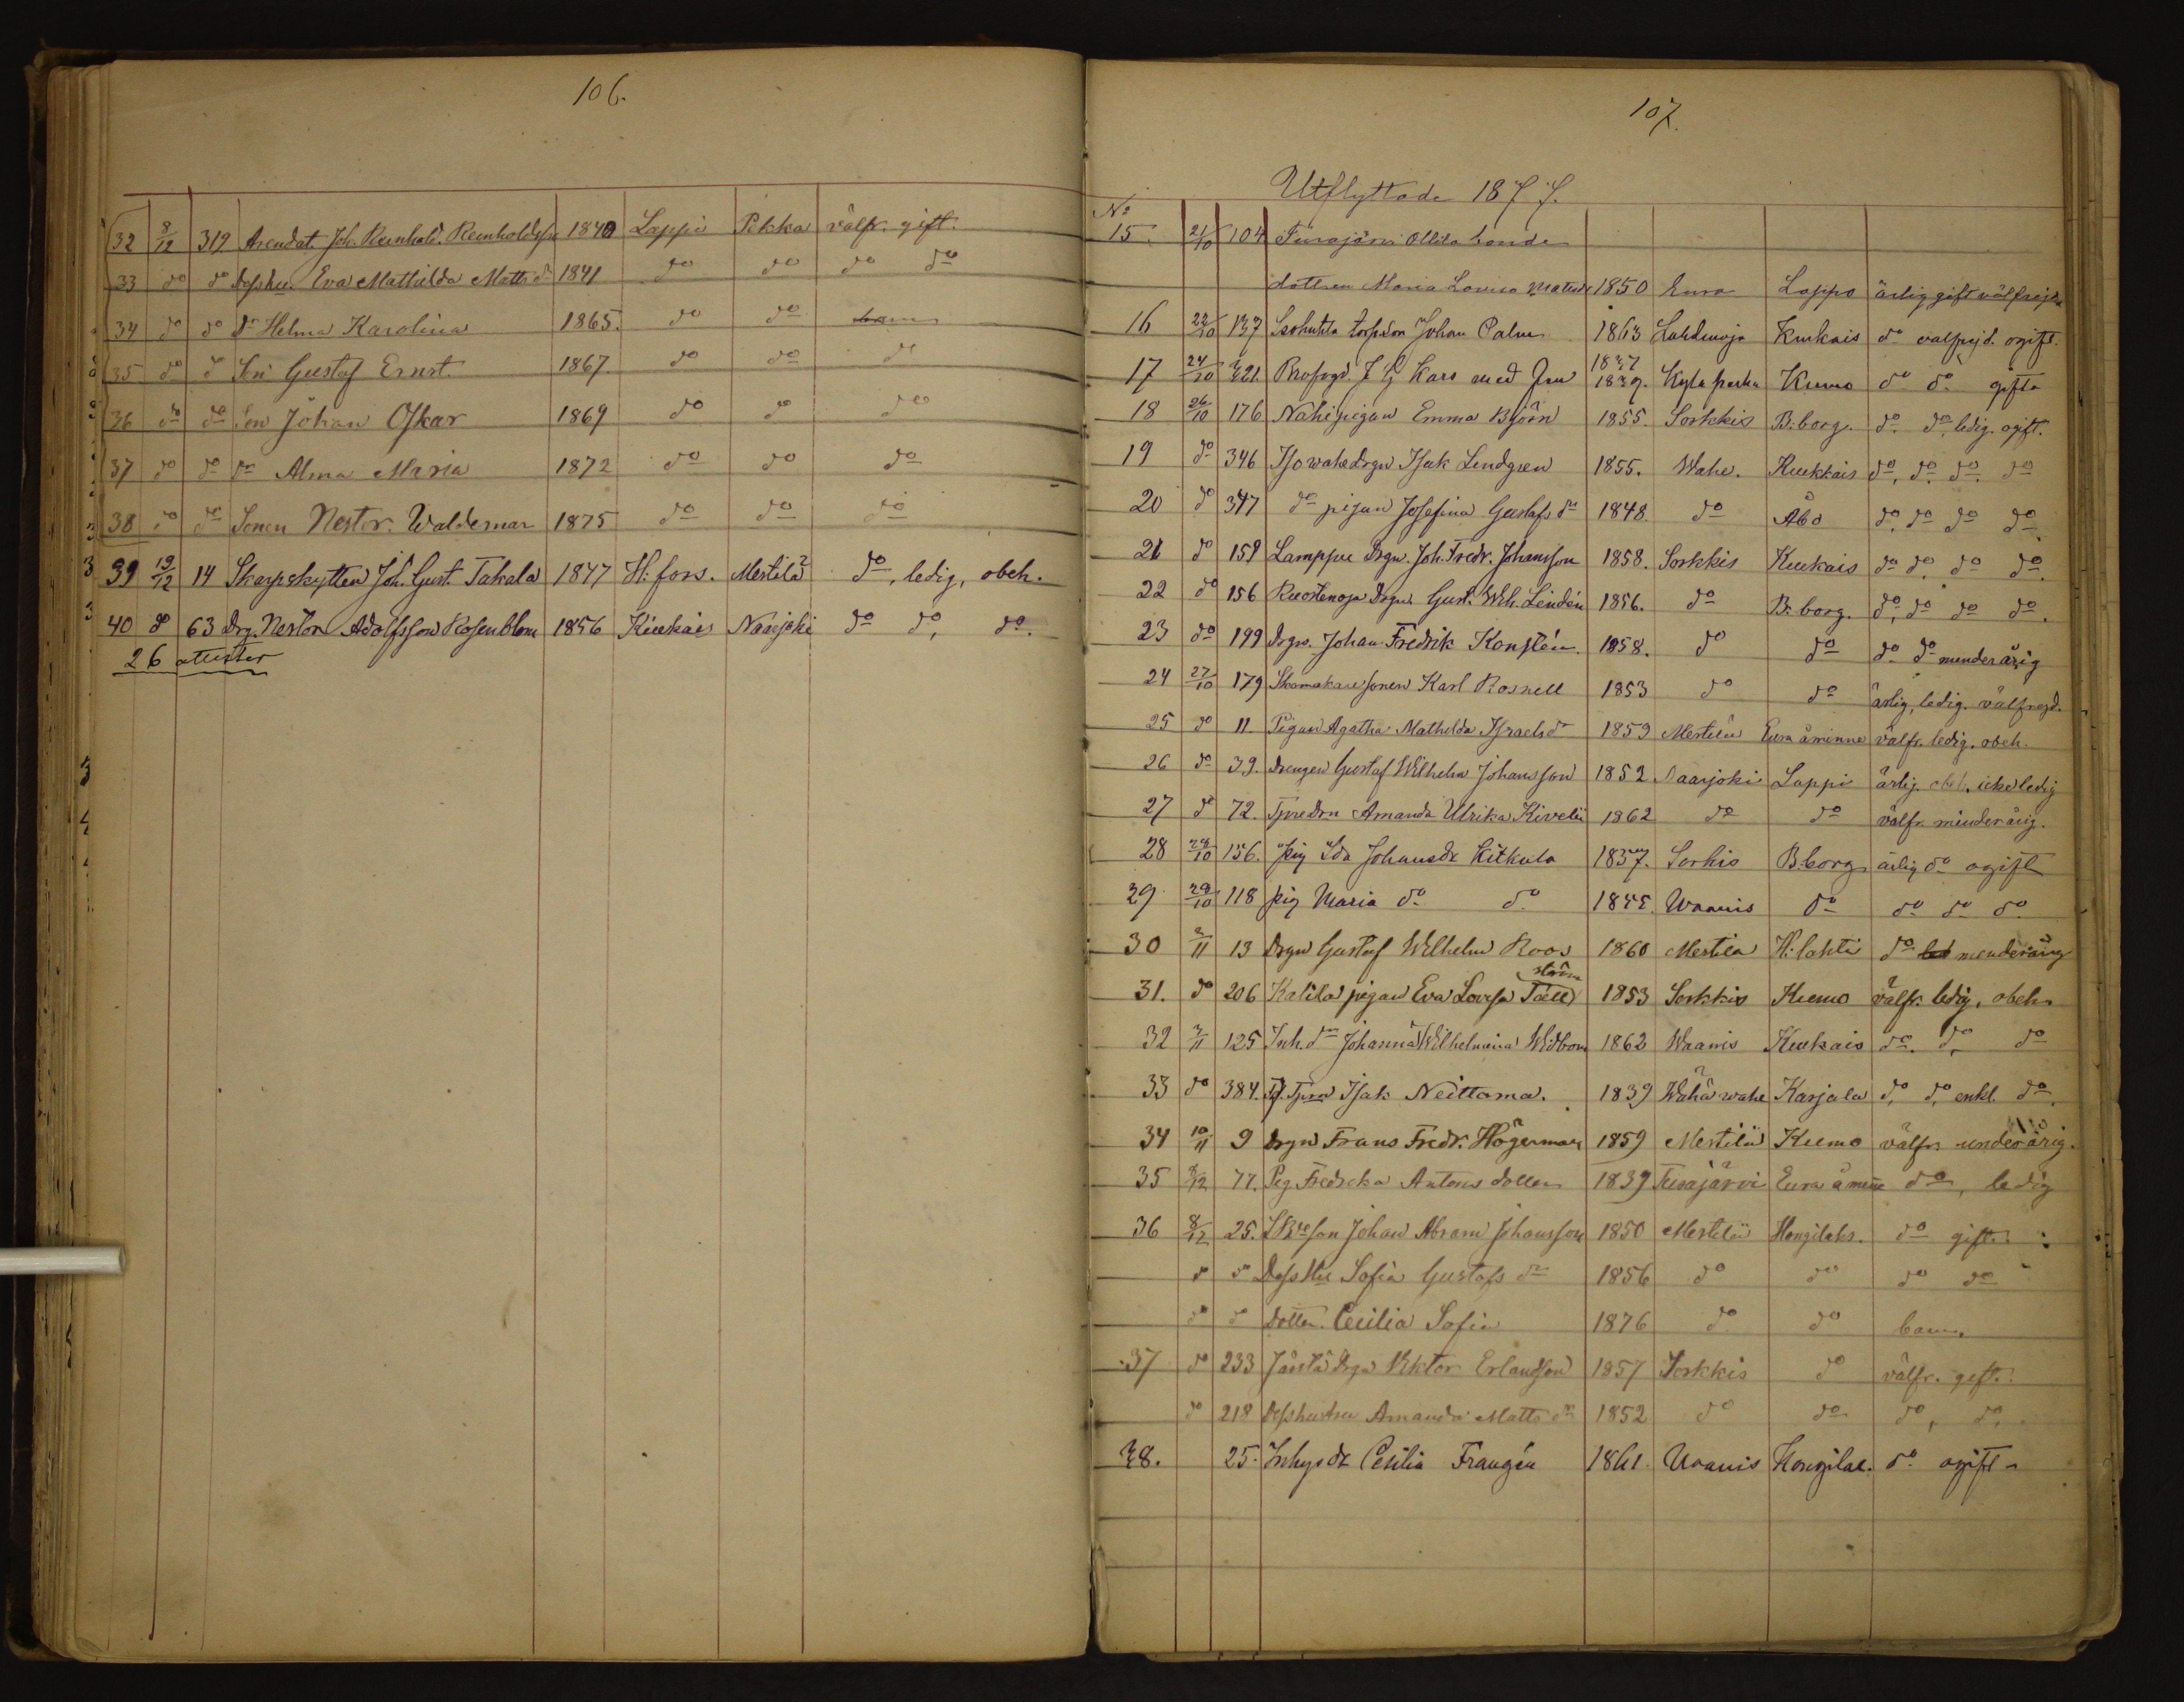 106.
32 8/12 319 Arendat. Joh. Reinhold Reinholdsson 1840 Lappi Pekka välfr. gift.
33 do do Dess hu Eva Mathilda Matts dr 1841 do do do do
34 do do dr Helma Karolina 1865. do do barn
35 do do Son Gustaf Ernst 1867 do do do
36 do do Son Johan Oskar 1869 do do do
37 do do dr Alma Maria 1872 do do do
38 do do Sonen Nestor Waldemar 1875 do do do
39 19/12 14 Skarpskytten Joh. Gust. Takala 1847 H:fors. Mestilä do, ledig, obeh.
40 do 63 Drg. Nestor Adolfsson Rosenblom 1856 Kiukais Naarjoki do do, do.
26 attester
107.
Utflyttade 1877.
No
15. 21/10 104 Turajärvi Ollila bonde
dottren Maria Lovisa 1850 Eura Lappo ärlig gift välfrejd
16 22/10 137 Isohuhta torp. son Johan Palm 1863 Lahdinoja Kiukais do välfrejd. ogift.
17 24/10 221. J G Kars med fru 1837 1839. Kyläpeska Kumo do do gifta
18 26/10 176 Nahi pigan Emma Björn 1855. Sorkkis B:borg. do. do, ledig. ogift.
19 do 346 Isowahe drgn Isak Lindgren 1855. Wahe. Kiukkais do, do. do. do
20 do 347 do pigan Josefina Gustafs dr 1848 do Åbo do, do do do
21 do 159 Lamppu drgn. Joh. Fredr. Johansson 1858. Sorkkis Kiukais do do. do do.
22 do 156 Ruostenoja drgn. Gust. Wilh. Lindén 1856. do B:borg. do, do do do.
23 do 199 Drgn. Johan Fredrik Konstén. 1858. do do do do minderårig
24 27/10 179 Skomakaresonen Karl Rosnell 1853 do do ärlig, ledig. välfrejd.
25 do 11. Pigan Agatha Mathilda Israels dr 1859 Mestilä Eura åminne välfr. ledig. obeh.
26 do 39. Drengen Gustaf Wilhelm Johansson 1852 Naarjoki Lappi ärlig. obeh. icke ledig
27 do 72. Amanda Ulrika Kivelä 1862 do do välfr. minderårig.
28 28/10 156. pig Ida Johansdr Kitkula 1857. Sorkis B:borg ärlig do ogift
29 29/10 118 pig Maria do do 1845. Waanis do do do do
30 2/11 13 Drgn Gustaf Wilhelm Roos 1860 Mestilä H:lahti do minderårig
31. do 206 Kalila pigan Eva Lovisa Tällström 1853 Sorkkis Kumo välfr. ledig, obeh.
32 3/11 125 Inh. dr Johanna Wilhelmina Widbom 1862 Waanis Kiukais do. do, do
33 do 384. Isak Neittama. 1839 Wähä wahe Karjala do, do, enkl. do.
34 10/11 9 Drgn Frans Fredr. Högerman 1859 Mestilä Kumo välfr. minderårig.
35 8/12 77. Pig. Fredrika Antons dotter 1839 Turajärvi Eura åminne do, ledig
36 8/12 25. son Johan Abram Johansson 1850 Mestilä Hongilaks. do gift.
do do Dess hu Sofia Gustafs dr 1856 do do do do
do do Dotter. Cecilia Sofia 1876 do do barn.
37 do 233 Järstä drgn Viktor Erlandsson 1857 Sorkkis do välfr. gift.
do 218 Dess hustru Amanda Matts dr 1852 do do do, do.
38. 25. Inhys dr Cecilia Frangén 1861. Waanis Hongilax. do. ogift